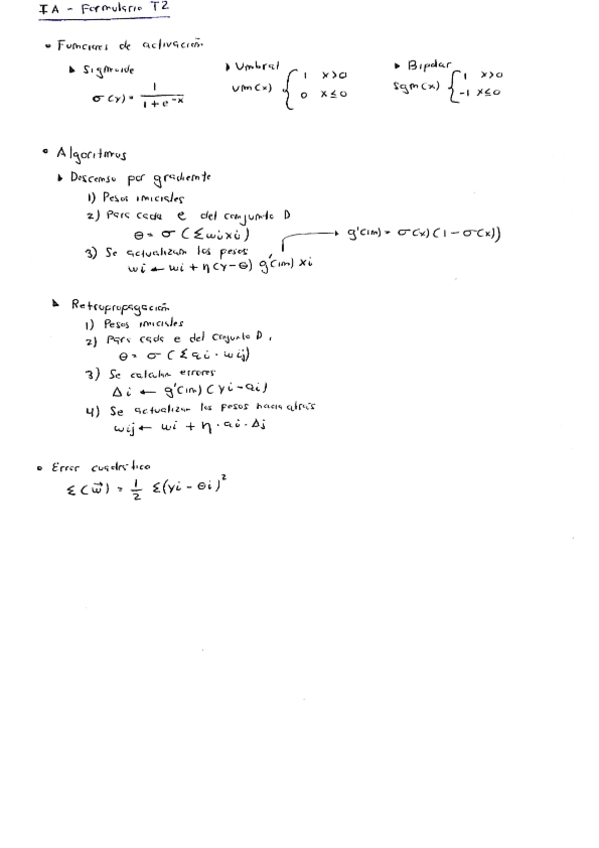 IA - Formulario T2
• Funciones de activación
▸ Sigmoide ▸ Umbral ▸ Bipolar
σ(y) = 1 / (1 + e^-x) Um(x) { 1 x>0 Sgm(x) { 1 x>0
0 x≤0 -1 x≤0
• Algoritmos
▸ Descenso por gradiente
1) Pesos iniciales
2) Para cada e del conjunto D
θ = σ (Σ wi xi) → g'(in) = σ(x)(1 - σ(x))
3) Se actualizan los pesos
wi ← wi + η(y-θ) g'(in) xi
▸ Retropropagación
1) Pesos iniciales
2) Para cada e del conjunto D,
θ = σ (Σ ai · wij)
3) Se calculan errores
Δi ← g'(in)(yi - ai)
4) Se actualizan los pesos hacia atrás
wij ← wi + η · ai · Δj
• Error cuadrático
Ɛ(w⃗) = 1/2 Σ(yi - θi)²